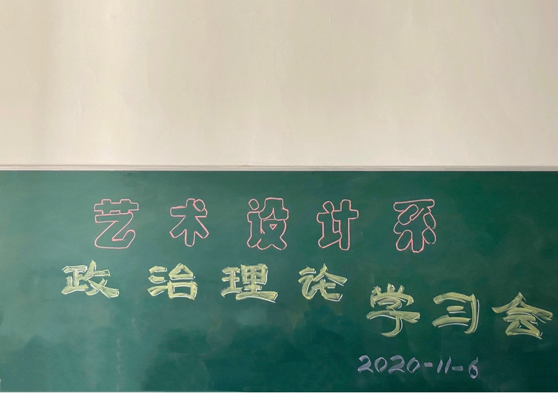 艺术设计系
政治理论学习会
2020-11-6